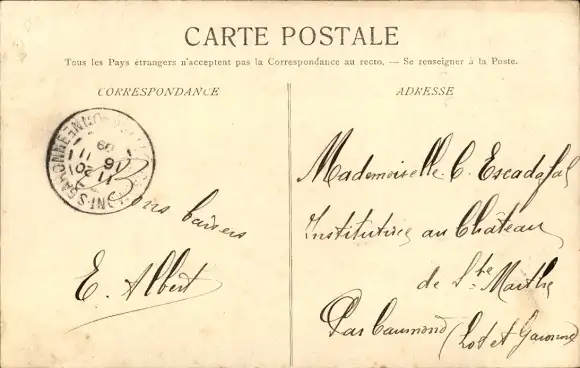 CARTE POSTALE
Tous les Pays étrangers n'acceptent pas la Correspondance au recto. — Se renseigner à la Poste.
CORRESPONDANCE
ADRESSE
Bons baisers
E. Albert
Mademoiselle C. Escadafal
Institutrice au Château
de Ste Marthe
Par Caumond (Lot et Garonne)